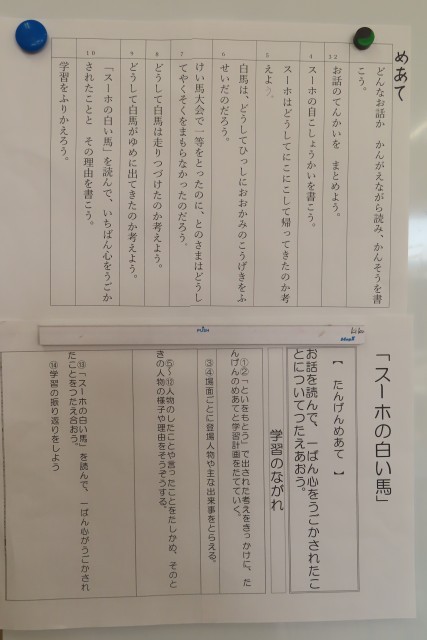 めあて
どんなお話か　かんがえながら読み、かんそうを書
こう。
1 2
お話のてんかいを　まとめよう。
4
スーホの自こしょうかいを書こう。
5
スーホはどうしてにこにこして帰ってきたのか考
えよう。
6
白馬は、どうしてひっしにおおかみのこうげきをふ
せいだのだろう。
7
けい馬大会で一等をとったのに、とのさまはどうし
てやくそくをまもらなかったのだろう。
8
どうして白馬は走りつづけたのか考えよう。
9
どうして白馬がゆめに出てきたのか考えよう。
10
「スーホの白い馬」を読んで、いちばん心をうごか
されたことと　その理由を書こう。
学習をふりかえろう。
「スーホの白い馬」
【　たんげんめあて　】
お話を読んで、一ばん心をうごかされたこ
とについてつたえあおう。
学習のながれ
①②「といをもとう」で出された考えをきっかけに、た
んげんのめあてと学習計画をたてていく。
③④場面ごとに登場人物や主な出来事をとらえる。
⑤～⑫人物のしたことや言ったことをたしかめ、そのと
きの人物の様子や理由をそうぞうする。
⑬「スーホの白い馬」を読んで、一ばん心がうごかされ
たことをつたえ合おう。
⑭学習の振り返りをしよう